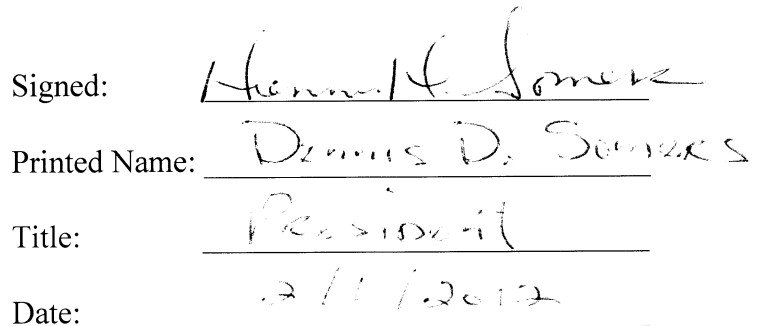 Signed: Dennis D. Somers
Printed Name: Dennis D. Somers
Title: President
Date: 2/1/2012